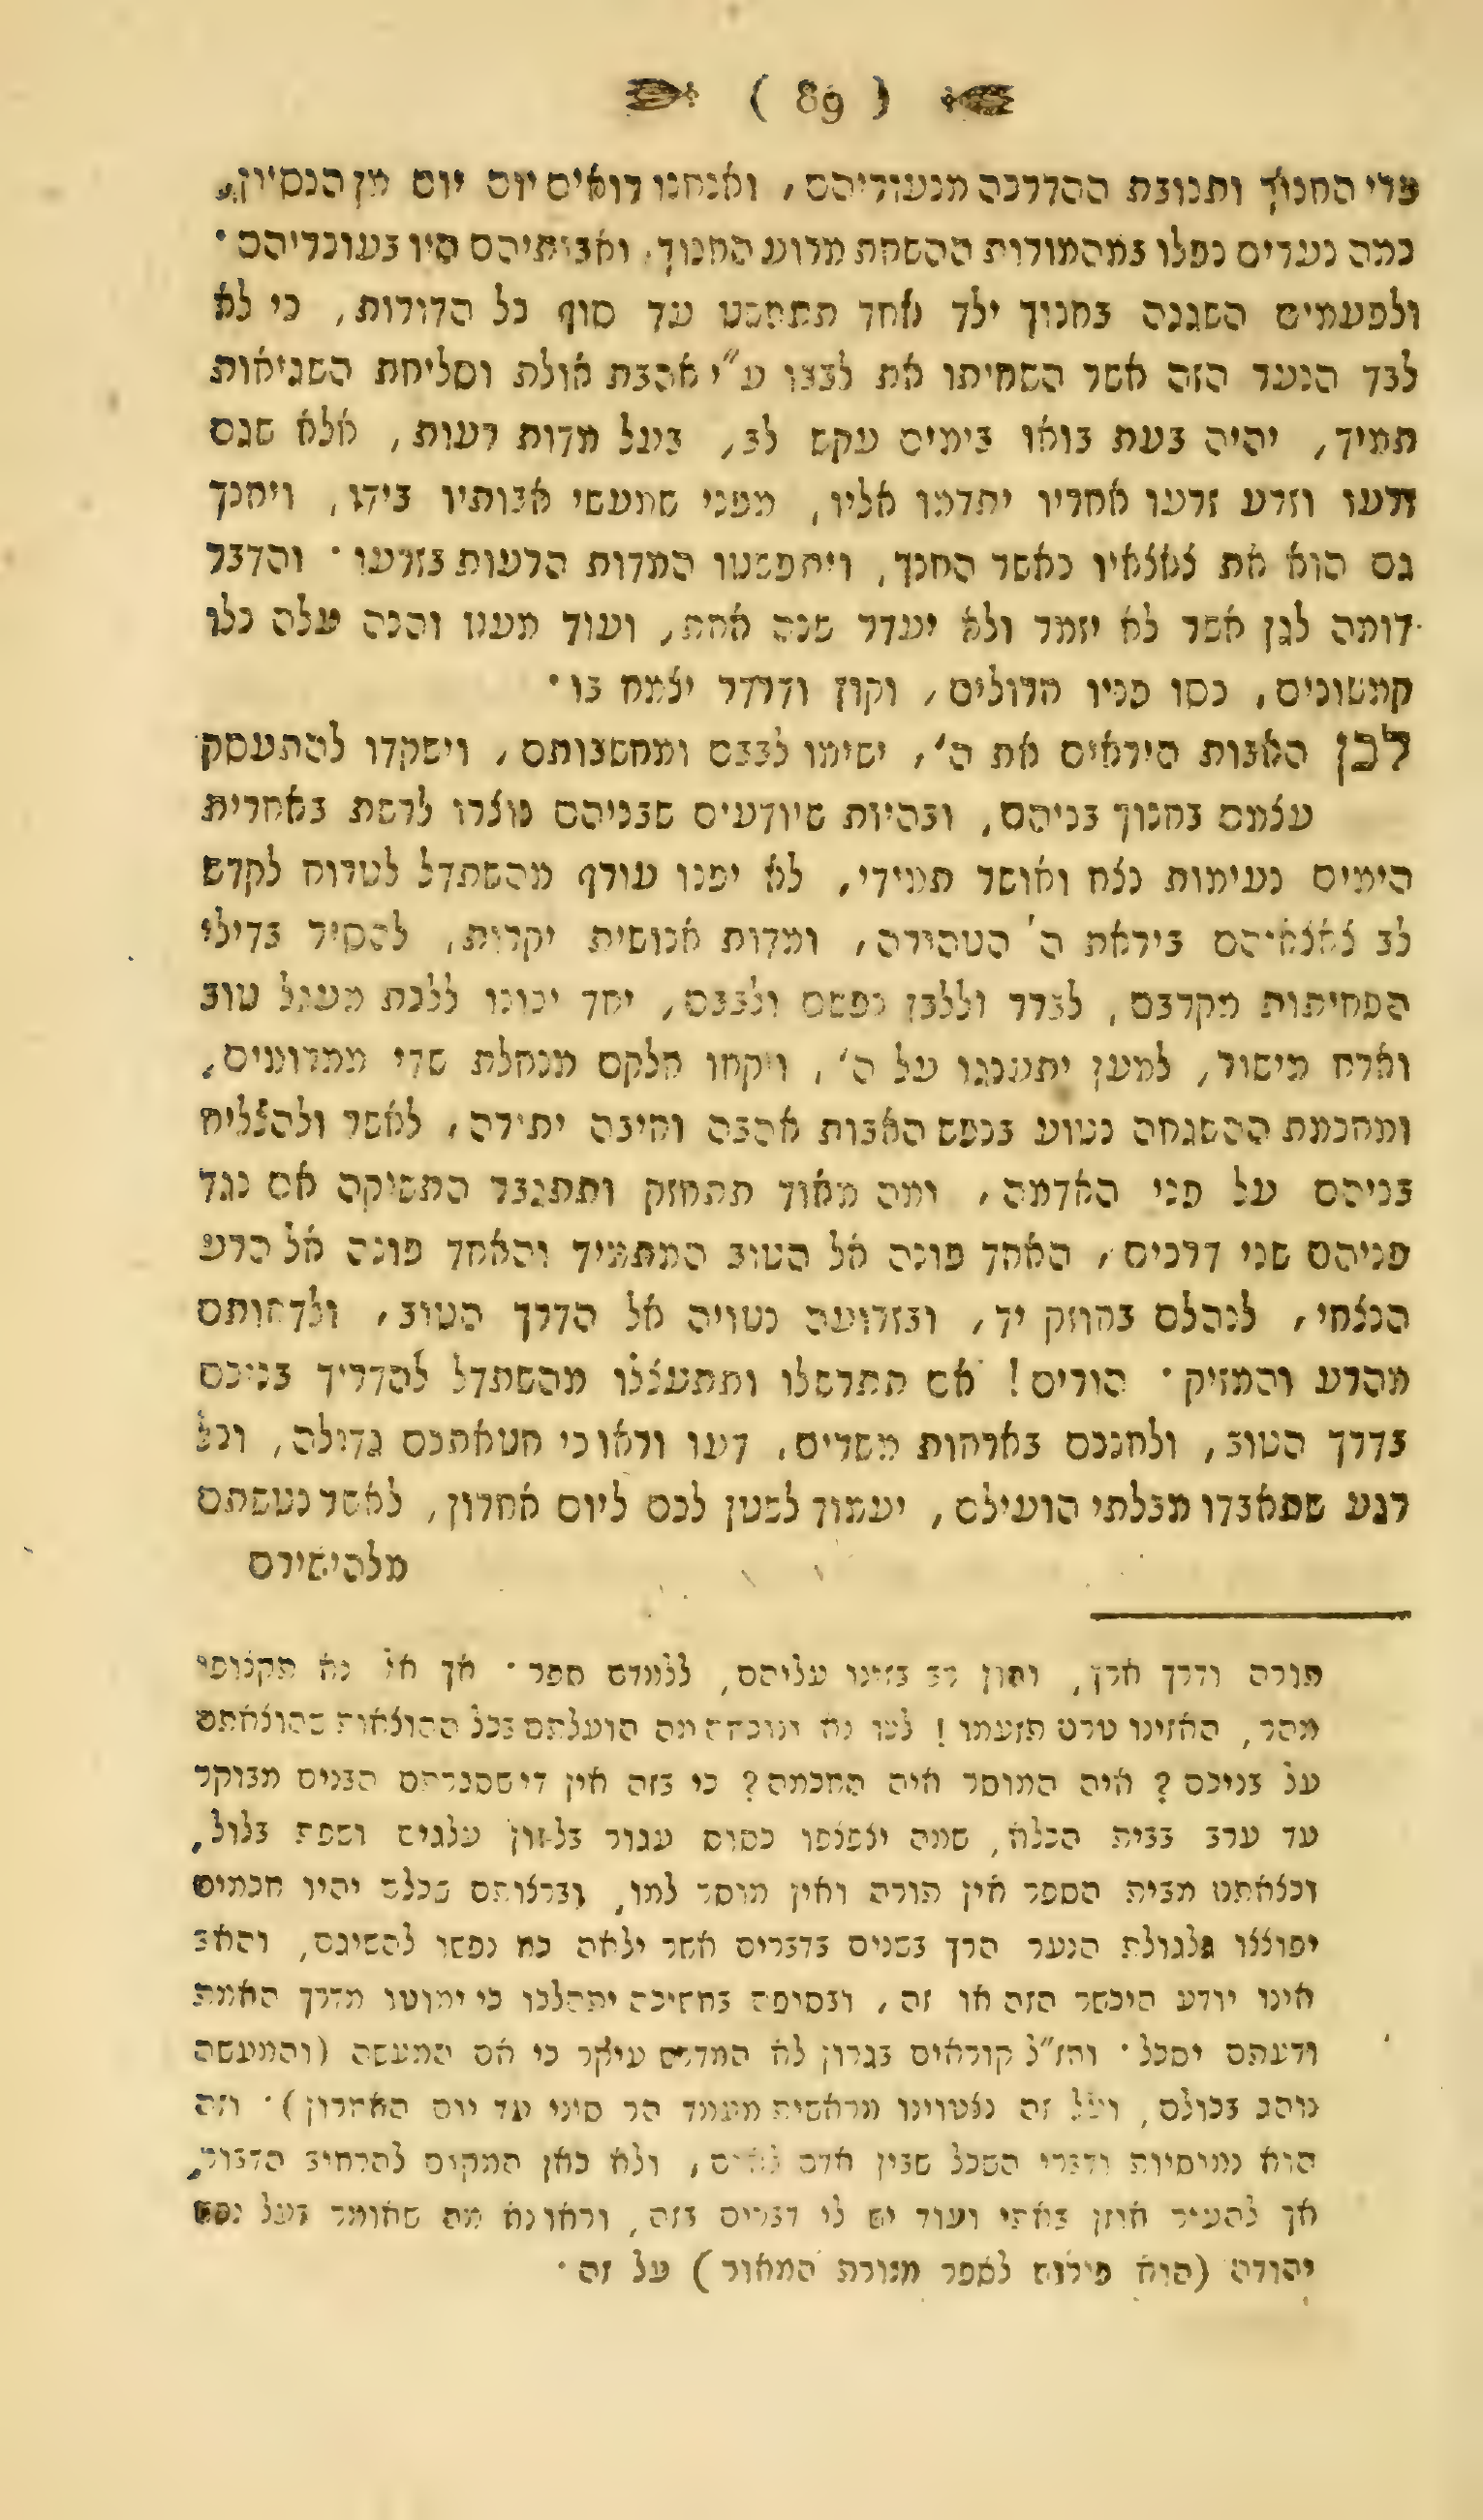 ( 89 )
פרי החנוך ותנובת ההדרכה מנעוריהם, ואנחנו רואים יום יום מן הנסיון,
כמה נערים נפלו במהמורות ההשחת מרוע החנוך, ואבותיהם היו בעוכריהם·
ולפעמים השגגה בחנוך ילד אחד תתפשט עד סוף כל הדורות, כי לא
לבד הנער הזה אשר השחיתו את לבבו ע״י אהבת אולת וסליחת השגיאות
תמיד, יהיה בעת בואו בימים עקש לב, בעל מדות רעות, אלא שגם
זרעו וזרע זרעו אחריו יתדמו אליו, מפני שמעשי אבותיו בידו, ויחנך
גם הוא את צאצאיו כאשר החנך, ויתפשטו המדות הרעות בזרעו· והדבר
דומה לגן אשר לא יזמר ולא יעדר שנה אחת, ועוד מעט והנה עלה כלו
קמשונים, כסו פניו חרולים, וקוץ ודרדר יצמח בו·
לכן האבות היראים את ה׳, ישימו לבבם ומחשבותם, וישקדו להתעסק
עצמם בחנוך בניהם, ובהיות שיודעים שבניהם נוצרו לרשת באחרית
הימים נעימות נצח ואושר תמידי, לא יפנו עורף מהשתדל לטרוח לקדש
לב צאצאיהם ביראת ה׳ הטהורה, ומדות אנושית יקרות, להסיר בדילי
הפחיתות מקרבם, לברר וללבן נפשם ולבבם, יחד יכונו ללכת מעגל טוב
וארח מישור, למען יתענגו על ה׳, ויקחו חלקם מנחלת שדי ממרומים,
ומחכמת ההשגחה נטוע בנפש האבות אהבה וחיבה יתירה, לאשר ולהצליח
בניהם על פני האדמה, ומה מאוד תתחזק ותתגבר התשוקה אם נגד
פניהם שני דרכים, האחד פונה אל הטוב המתמיד והאחד פונה אל הרע
הנצחי, לנהלם בחוזק יד, ובזרועה נטויה אל הדרך הטוב, ולדחותם
מהרע והמזיק· הורים! אם תתרשלו ותתעצלו מהשתדל להדריך בניכם
בדרך הטוב, ולחנכם בארחות משרים, דעו וראו כי חטאתכם גדולה, וכל
רגע שתאבדו מבלתי הועילם, יעמוד לשטן לכם ליום אחרון, לאשר נטשתם
מלהישירם
תורה ודרך ארץ, והון רב בזזינו עליהם, ללמדם ספר· אך אל נא תקצופי
מהר, האזינו טרם תזעמו! לכו נא ונוכחה מה הועלתם בכל ההוצאות שהוצאתם
על בניכם? איה המוסר איה החכמה? כי בזה אין די שסגרתם הבנים מבוקר
עד ערב בבית הכלא, שמה יצפצפו כסוס עגור בלשון עלגים ושפת בלול,
וכצאתם מבית הספר אין תורה ואין מוסר למו, וברצותם שכלם יהיו חכמים
יפוצצו גלגולת הנער הרך בשנים בדברים אשר ילאה כח נפשו להשיגם, והאב
אינו יודע היכשר הזה או זה, ובסופה בחשיכה יתהלכו כי ימוטו מדרך האמת
ודעתם יסכל· וחז״ל קוראים בגרון לא המדרש עיקר כי אם המעשה (והמעשה
נוהג בכולם, ועל זה נצטוינו מראשית מעמד הר סיני עד יום האחרון)· וזה
הוא נמוסיות ודברי השכל שבין אדם לאדם, ולא כאן המקום להרחיב הדבור,
אך להעיר אוזן באתי ועוד יש לי דברים בזה, וראו נא מה שאומר בעל נפש
יהודה (הוא פירוש לספר מנורת המאור) על זה·